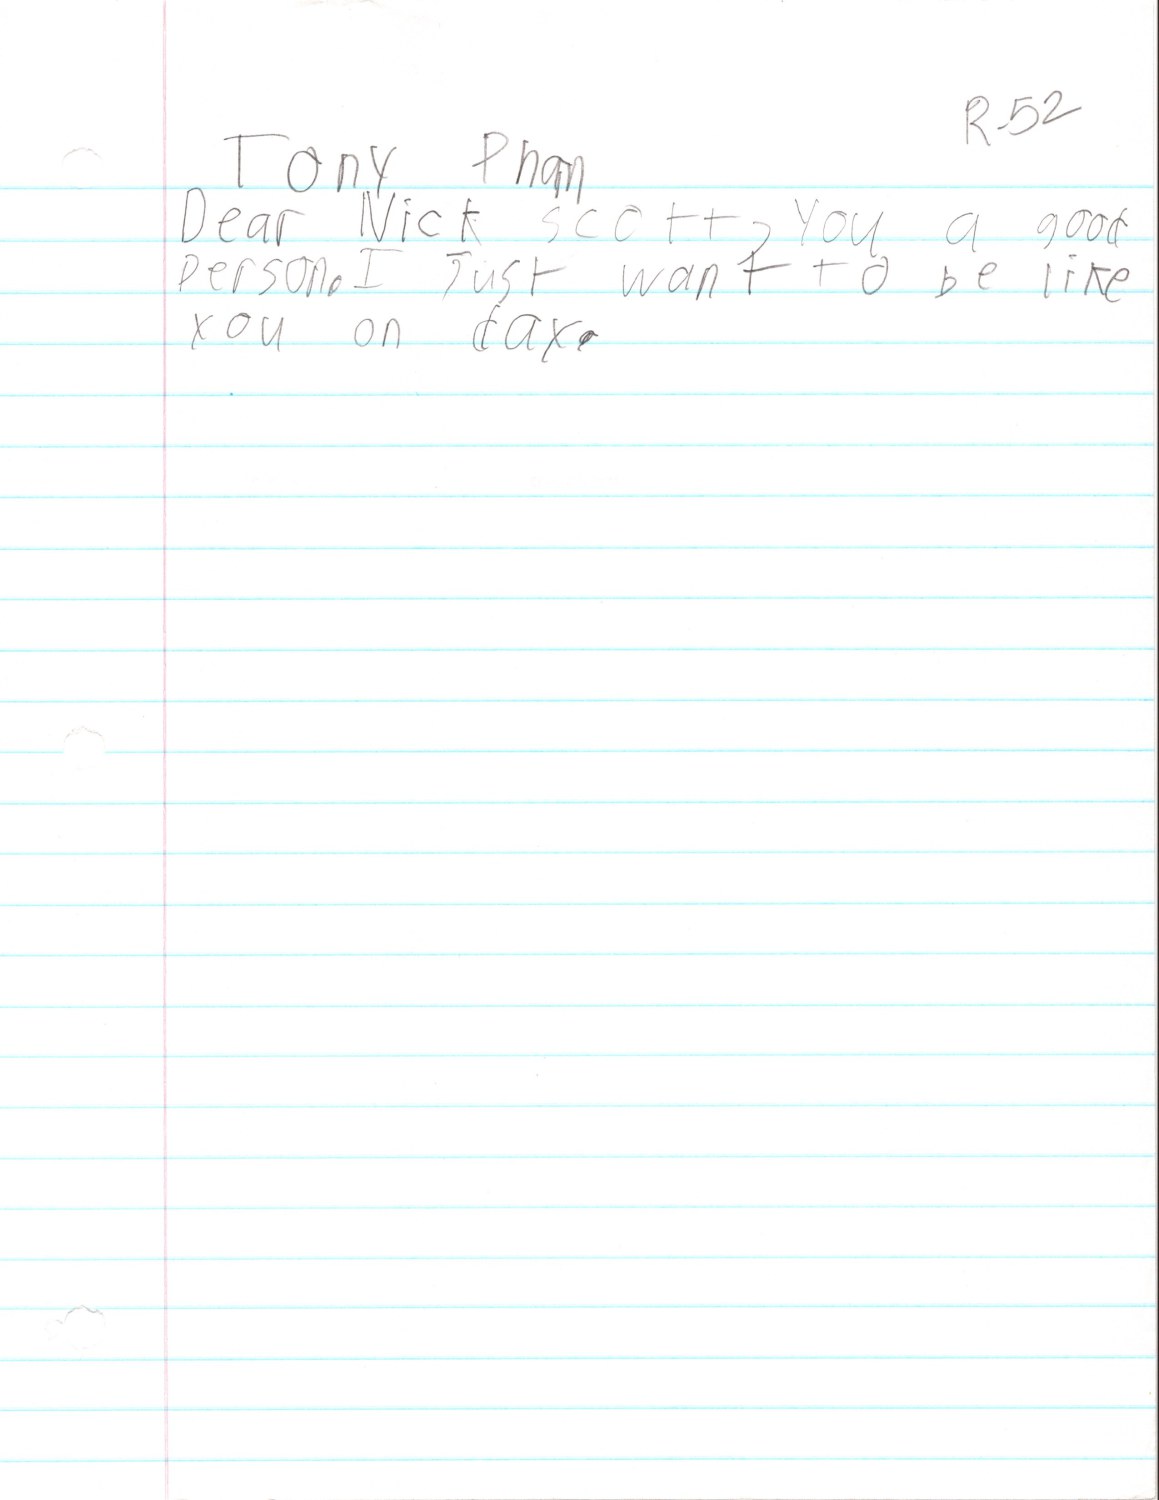 R-52
Tony Phan
Dear Nick scott, You a good
person. I Just want to be like
you on day.